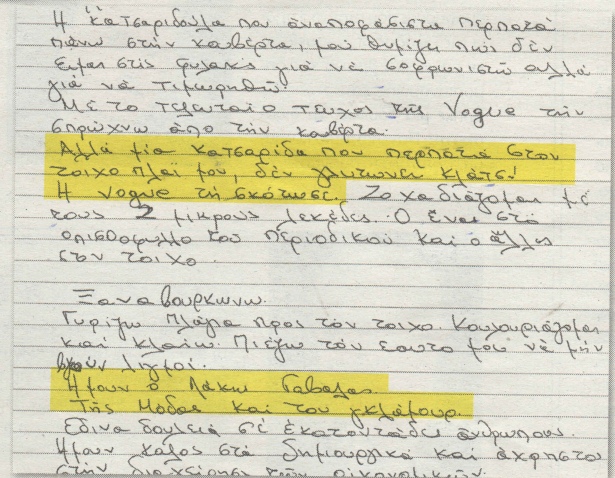 Η κατσαριδούλα που αναποφάσιστα περπατά
πάνω στην κουβέρτα, μού θυμίζη πώς δέν
είμαι στις φυλακές γιά νά σοφρωνιστώ αλλά
γιά νά τιμωρηθώ.
Μέ το τελευταίο τεύχος της Vogue την
σπρώχνω απο την κουβέρτα.
Αλλά μία κατσαρίδα που περπατά στον
τοιχο πλαϊ μου, δέν γλυτωνει κλάτς!
Η Vogue τη σκότωσε. Ζοχαδιάζομαι μέ
τους 2 μικρους λεκέδες. Ο ένας στο
οπισθοφυλλο του περιοδικού και ο άλλος
στον τοιχο.
Ξαναβουρκωνω.
Γυρίζω πλάγια προς τόν τοιχο. Κουλουριάζομαι
και κλαίω. Πιέζω τόν εαυτο μου νά μήν
βγούν λυγμοί.
Ημουν ο Λάκης Γαβαλας.
Της Μόδας και του γκλάμουρ.
Εδινα δουλειά σέ εκατοντάδες ανθρωπους.
Ημουν καλος στα δημιουργικά και άχρηστος
στην διαχείρηση τών οικονομικών.